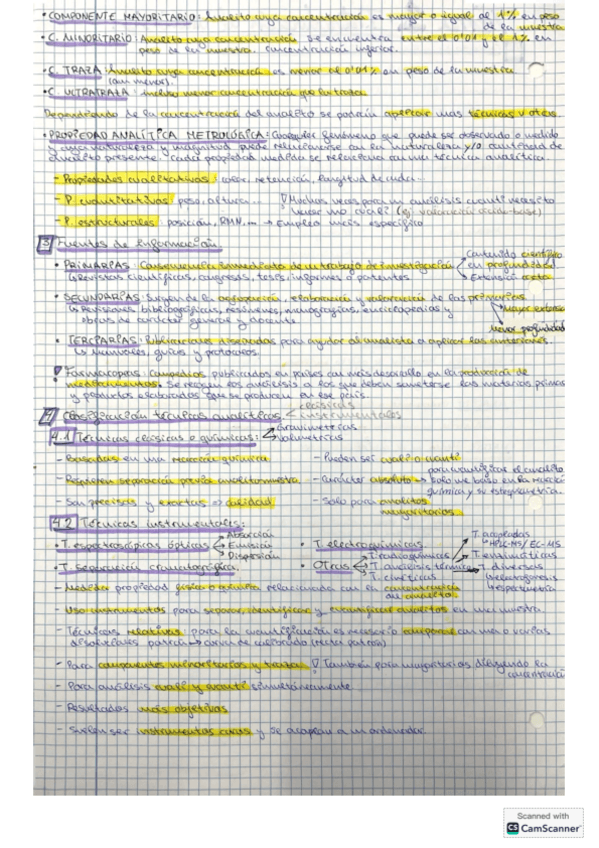 · COMPONENTE MAYORITARIO: Analito cuya concentración es mayor o igual al 1% en peso
de la muestra
· C. MINORITARIO: Analito cuya concentración se encuentra entre el 0'01 y el 1% en
peso de la muestra. concentración inferior.
· C. TRAZA: Analito cuya concentración es menor al 0'01% en peso de la muestra.
· C. ULTRATRAZA: incluso menor concentración que la traza.
Dependiendo de la concentración del analito se podrán aplicar unas técnicas u otras.
· PROPIEDAD ANALÍTICA METROLÓGICA: Cualquier fenómeno que puede ser observado o medido
y cuya naturaleza y magnitud puede relacionarse con la naturaleza y/o cantidad de
analito presente. Cada propiedad medida se relaciona con una técnica analítica.
- Propiedades cualitativas: color, retención, longitud de onda...
- P. cuantitativas: peso, altura... ! Muchas veces para un análisis cuanti necesito
hacer uno cuali (ej: valoración ácido-base)
- P. estructurales: posición, RMN... → Empleo más específico
3 Fuentes de información
· PRIMARIAS: Consecuencia inmediata de un trabajo de investigación
Contenido científico
en profundidad
Extensión
↳ Revistas científicas, congresos, tesis, informes o patentes
· SECUNDARIAS: Surgen de la agrupación, elaboración y valoración de las primarias
↳ Revisiones bibliográficas, resúmenes, monografías, enciclopedias y
obras de carácter general y docente.
Mayor extensión
Menor profundidad
· TERCIARIAS: Publicaciones diseñadas para ayudar al analista a aplicar las anteriores.
↳ Manuales, guías y protocolos.
! Farmacopeas: Compendios publicados en países con más desarrollo en la producción de
medicamentos. Se recogen los análisis a los que deben someterse las materias primas
y productos elaborados que se producen en ese país.
4 Clasificación técnicas analíticas
clásicas
instrumentales
4.1 Técnicas clásicas o químicas:
Gravimétricas
Volumétricas
- Basadas en una reacción química
- Pueden ser cuali o cuanti
- Requieren separación previa analito-muestra
- Carácter absoluto → para cuantificar el analito
solo me baso en la reacción
química y su estequiometría.
- Son precisas y exactas ⇒ calidad
- Solo para analitos
mayoritarios
4.2 Técnicas instrumentales:
· T. espectroscópicas ópticas
Absorción
Emisión
Dispersión
· T. electroquímicas
· T. separación cromatográfica
· Otras
T. radioquímicas
T. análisis térmico
T. cinéticas
T. acopladas
↳ HPLC-MS/EC-MS
T. enzimáticas
T. diversas
- Medida propiedad física o química relacionada con la concentración
del analito
- Uso instrumentos para separar, identificar y cuantificar analitos en una muestra
- Técnicas relativas: para la cuantificación es necesario comparar con una o varias
disoluciones patrón → curva de calibrado (recta patrón)
- Para componentes minoritarios y trazas ! También para mayoritarios diluyendo la
concentración
- Para análisis cuali y cuanti simultáneamente.
- Resultados más objetivos
- Suelen ser instrumentos caros y se acoplan a un ordenador.
Scanned with
CS CamScanner